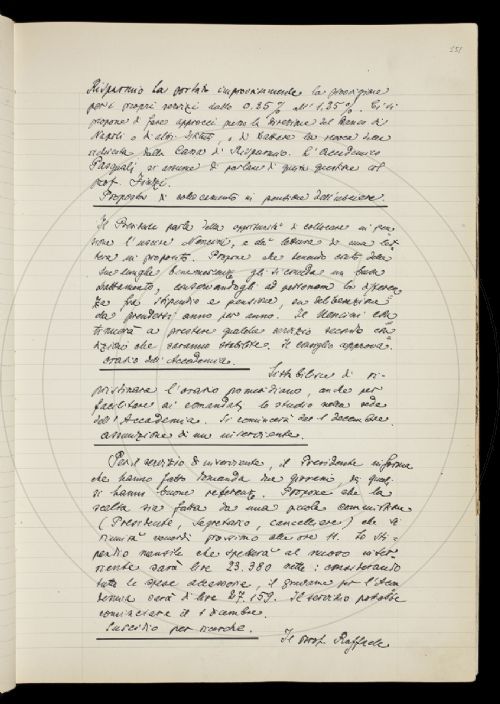 151
Risparmio ha portato improvvisamente la provvigione
per i propri servizi dallo 0.35% all'1.35%. Ci si
propone di fare approcci presso la Direzione del Banco di
Napoli, o di altri Istituti, o di trattare la revoca
della Cassa di Risparmio. L'Accademico
Pasquali si assume di parlare di questa questione col
prof. Finzi.
Proposta di collocamento in pensione dell'usciere.
Il Presidente parla della opportunità di collocare in pen-
sione l'usciere Mancini, e dà lettura di una let-
tera in proposito. Propone che tenendo conto delle
sue lunghe benemerenze gli si conceda un buon
trattamento, conservandogli ad personam la differen-
za fra stipendio e pensione, con deliberazione
da prendersi anno per anno. Il Mancini con-
tinuerà a prestare qualche servizio secondo con-
dizioni che saranno stabilite. Il consiglio approva.
Orario dell'Accademia.
Si stabilisce di ri-
pristinare l'orario pomeridiano, anche per
facilitare ai comandati lo studio nella sede
dell'Accademia. Si comincerà dal 1 dicembre.
Assunzione di un inserviente.
Per il servizio di inserviente, il Presidente informa
che hanno fatto domanda due giovani, di quali
si hanno buone referenze. Propone che la
scelta sia fatta da una piccola commissione
(Presidente, Segretario, cancelliere) che si
riunirà venerdì prossimo alle ore 11. Lo sti-
pendio mensile che spetterà al nuovo inser-
viente sarà lire 23.380 nette: considerando
tutte le spese accessorie, il gravame per l'Acca-
demia sarà di lire 27.159. Il servizio potrebbe
cominciare il 1 dicembre.
Sussidio per ricerche.
Il prof. Raffaele